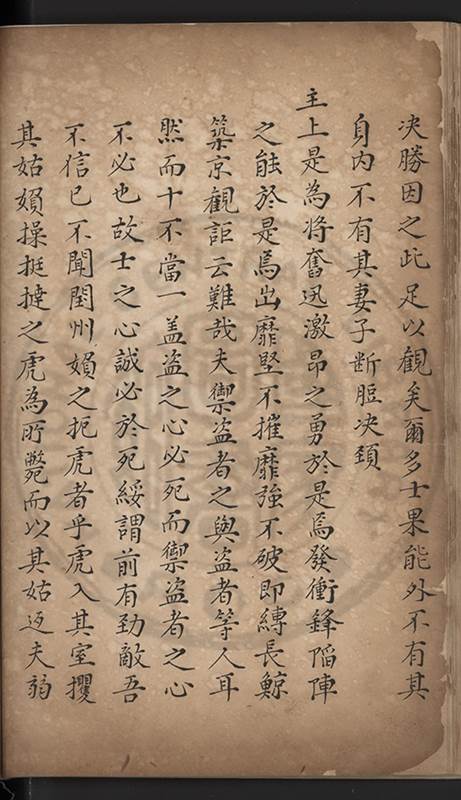 决勝因之此足以觀矣爾多士果能外不有其
身内不有其妻子断脰决頚
主上是為将奮迅激昂之勇於是焉發衝鋒陷陣
之能於是焉出靡堅不摧靡強不破即縳長鯨
築京觀詎云難哉夫禦盗者之與盗者等人耳
然而十不當一盖盗之心必死而禦盗者之心
不必也故士之心誠必於死綏謂前有勁敵吾
不信已不聞閏州媍之扼虎者乎虎入其室攫
其姑媍操挺撻之虎為所斃而以其姑返夫弱